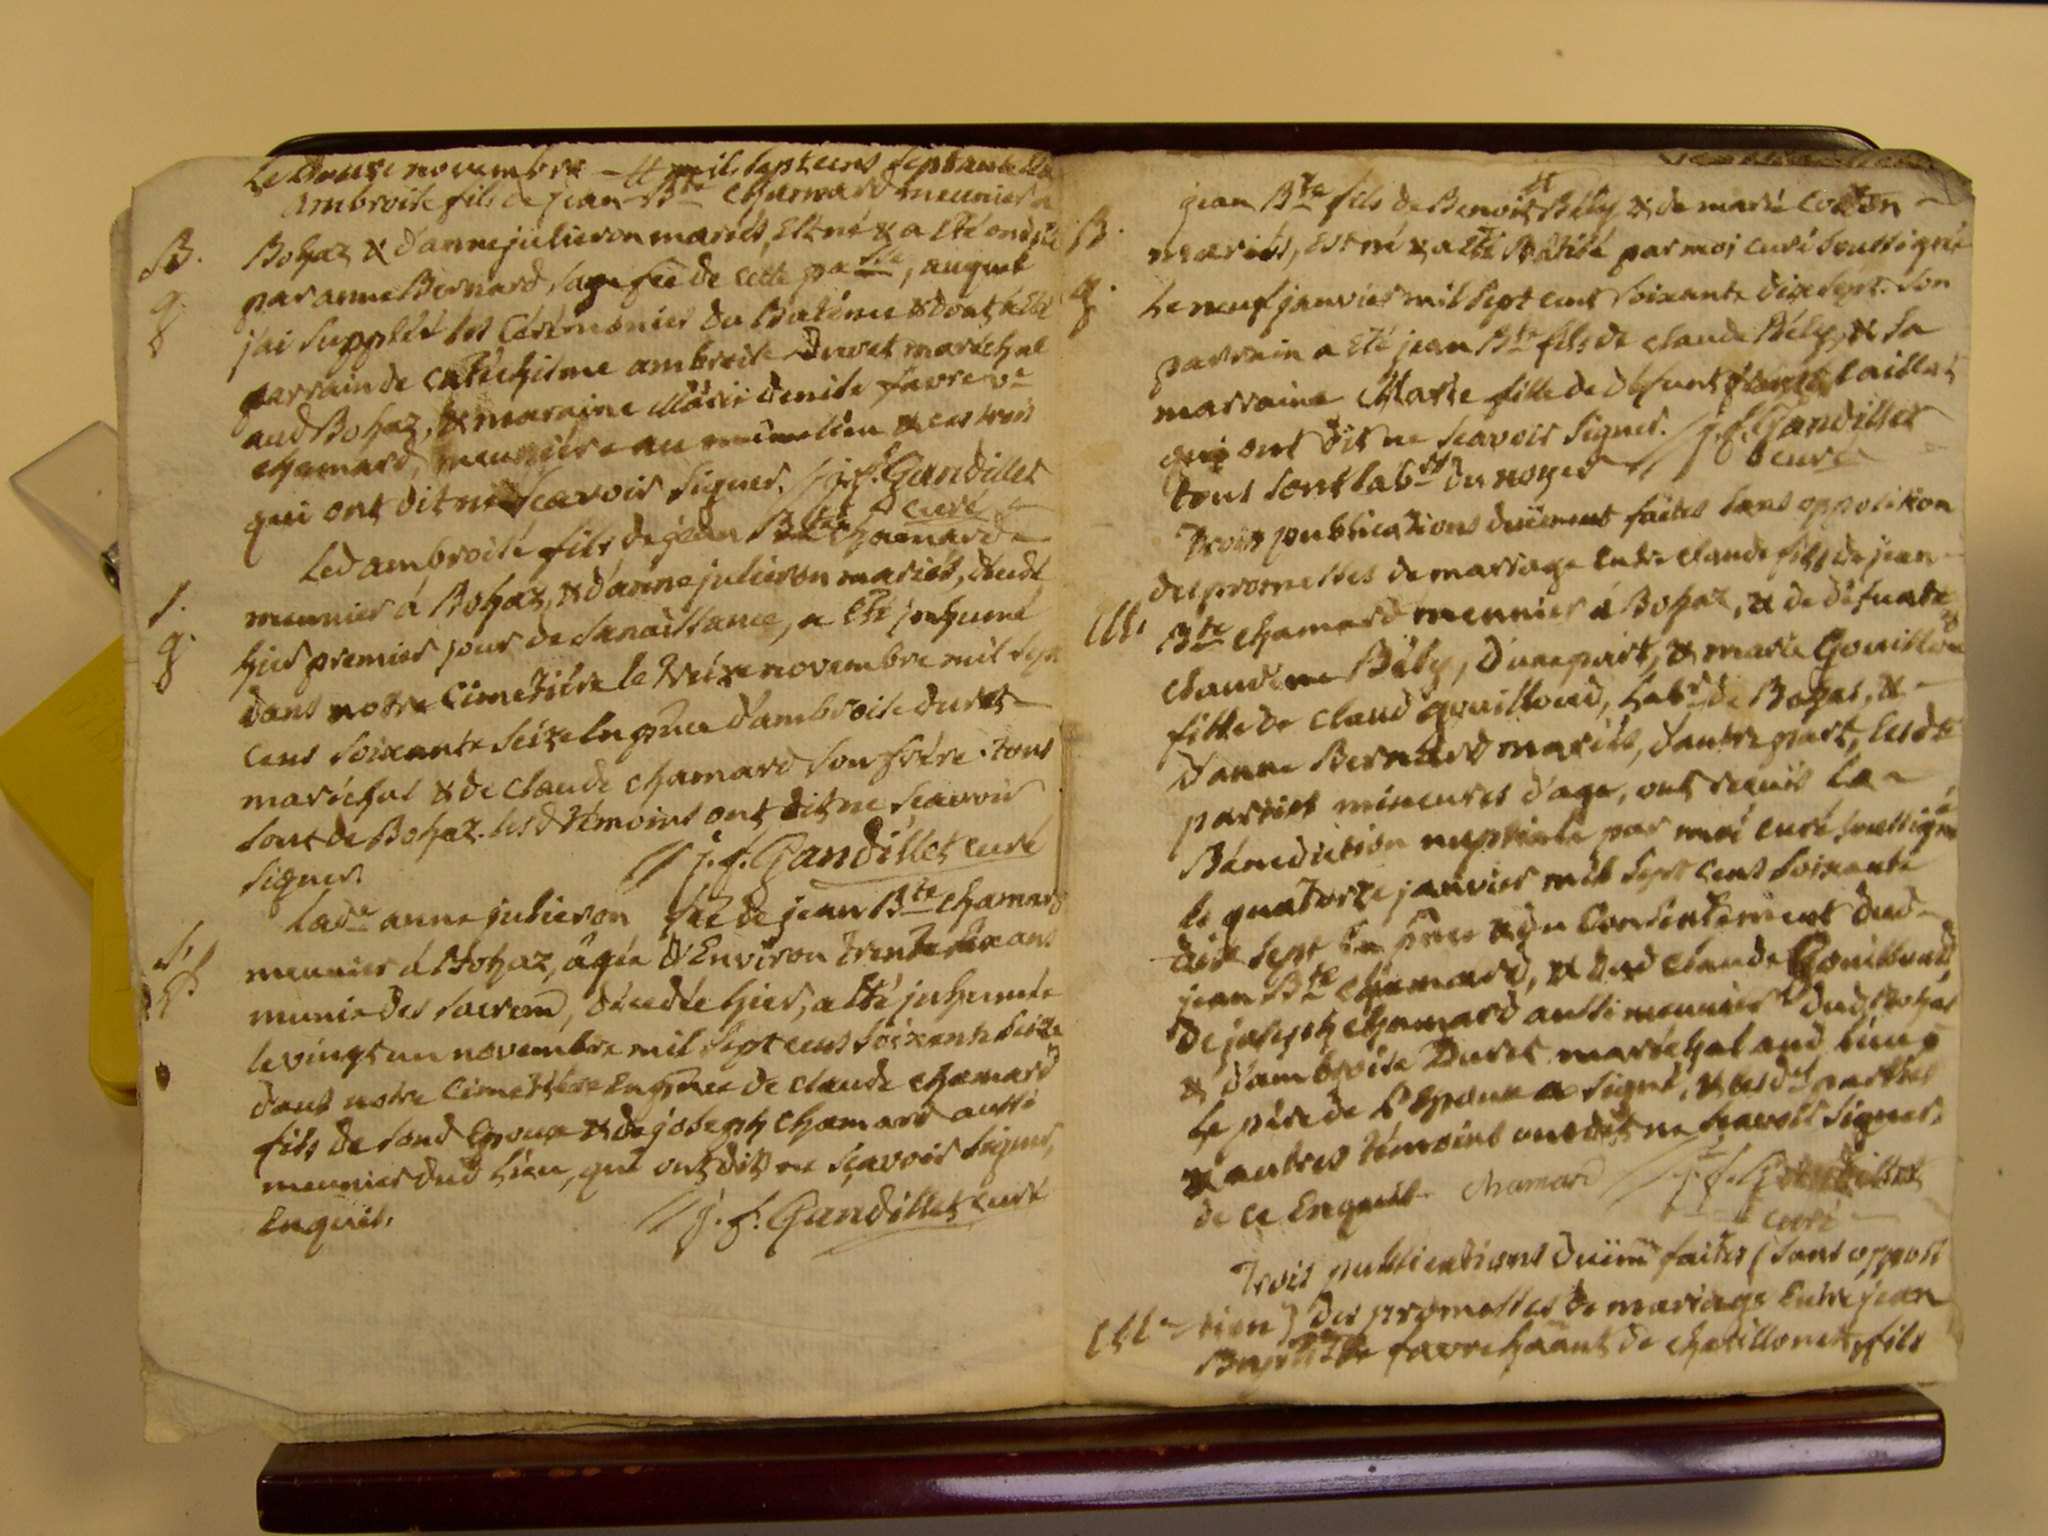 Le Douze novembre - mil sept cens septante
ambroise fils de jean Bte Chamard meunier a
B. Bohaz & d'anne julieron mariés, Est né & a Eté ondoié
g. par anne Bernard sage feë de cette passe, auquel
jai supplée les Cérémonies du Batéme & dont a Eté
parrain de catéchisme ambroise Duret maréchal
aud Bohaz, & maraine Marie denise favre ve
chamard, meuniere au même lieu & ces trois
qui ont dit ne Sçavoir Signer. // j. f. Gandillet
curé
Led ambroise fils de jean Bte Chamard
S. meunier á Bohaz, & d'anne julieron mariés, décédé
g. hier premier jour de sa naissance, a Eté jnhumé
dans notre Cimetière le treize novembre mil sept
cens soixante seize En pnce d'ambroise duret
maréchal & de claude chamard son frère. tous
sont de Bohaz. lesd témoins ont dit ne sçavoir
signer. // j. f. Gandillet curé
lade anne julieron fë de jean Bte Chamard
S. meunier á Bohaz, âgée d'Environ trente six ans
munie des sacrem, décédée hier, a Eté jnhumée
le vingt un novembre mil sept cens soixante seize
dans notre cimetière En pnce de claude chamard
fils de sond Epoux & de joseph chamard aussi
meunier dud lieu, qui ont dit ne sçavoir signer,
Enquis. // j. f. Gandillet curé
jean Bte fils de Benoit Bély & de marie Cotton
B. mariés, Est né & a Eté Bâtisé par moi curé soussigné
g. le neuf janvier mil sept cent soixante dix sept. son
parrain a Eté jean Bte fils de claude Bély, & sa
marraine Marie fille de défunt laillet
qui ont dit ne sçavoir signer. // j. f. Gandillet
tous sont labrs du noyer // curé
trois publications duëment faites sans opposition
des promesses de mariage Entre claude fils de jean
M. Bte chamard meunier á Bohaz, & de défunte
claudine Bély, d'une part, & marie Gouilloud
fille de claud gouilloud, labr de Bohas, &
d'anne Bernard mariés, d'autre part, lesdtes
parties mineures d'age, ont reçuës la
Bénédiction nuptiale par moi curé soussigné
le quatorze janvier mil sept cens soixante
dix sept En pnce & du Consentement dud
jean Bte chamard, & dud claude Gouilloud,
de joseph chamard aussi meunier dud Bohas
& d'ambroise Duret maréchal aud lieu
le pére de l'Epoux a signé, & lesdes parties
& autres témoins ont dit ne sçavoir signer,
de ce Enquis. chamard // j. f. Gandillet
curé
trois publications duëmt faites (sans opposi
M. tion) des promesses de mariage Entre jean
Baptiste favre háant de chatillonet, fils